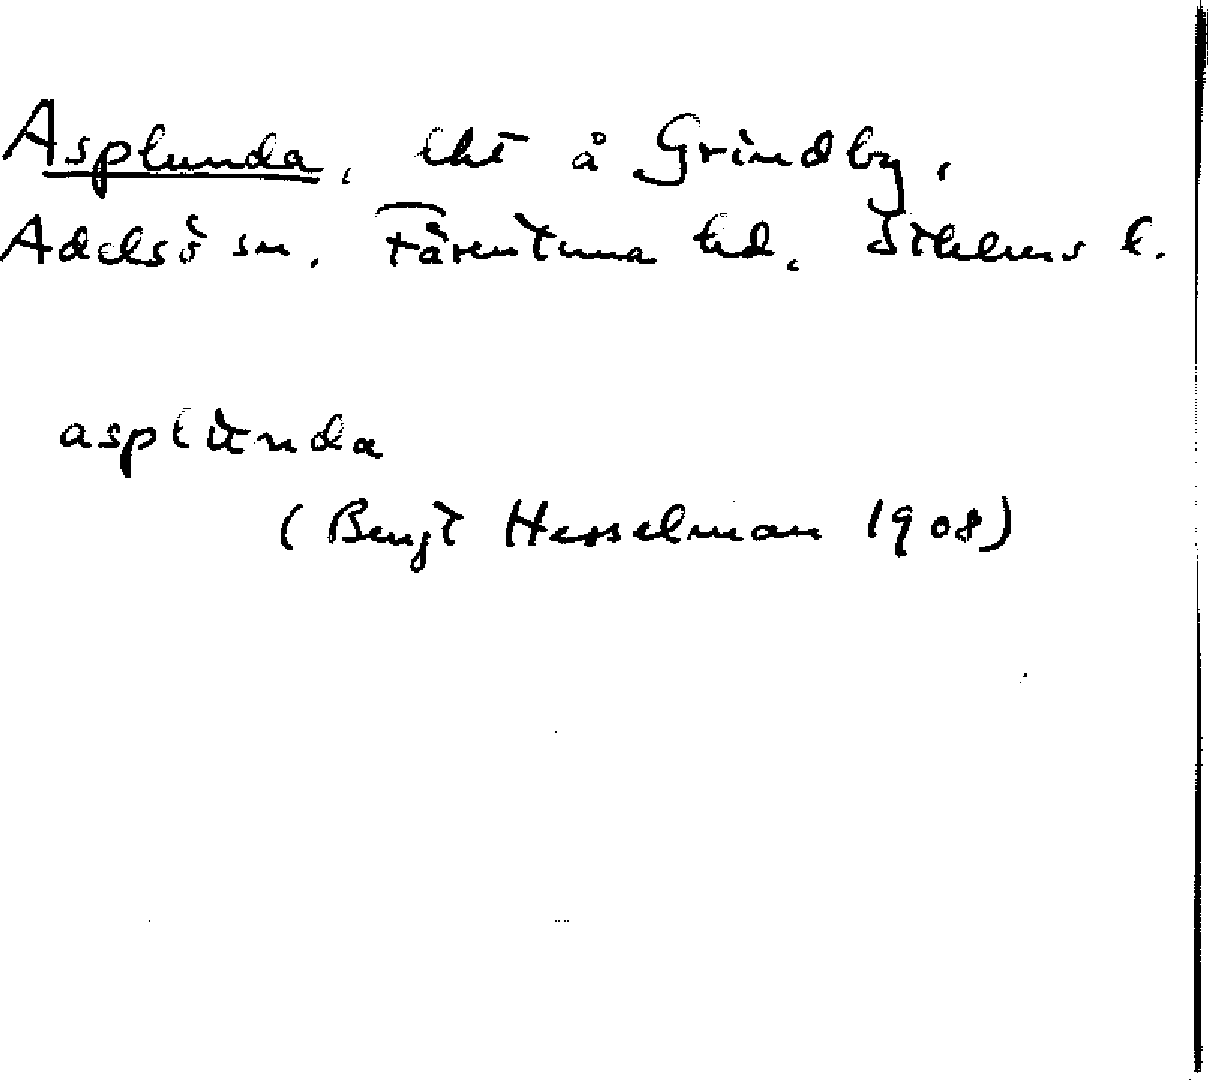 Asplunda, lht å Grindby,
Adelsö sn, Färentuna hd, Sthlms l.
asplùnda
(Bengt Hesselman 1908)